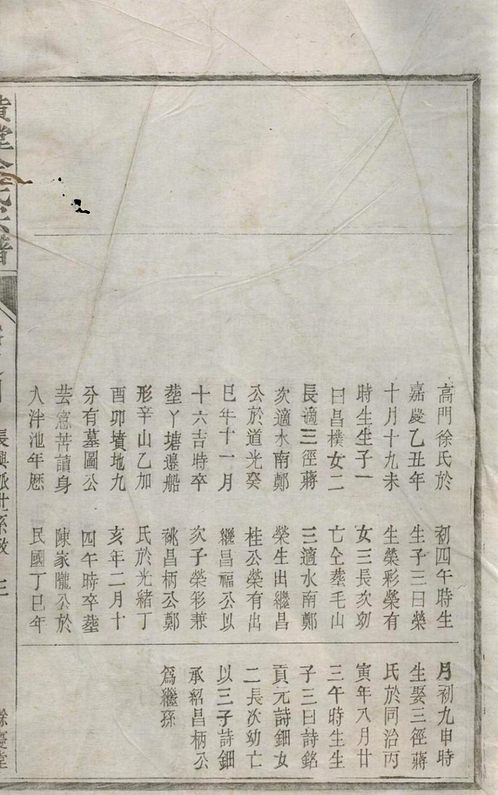 高門徐氏於
嘉慶乙丑年
十月十九未
時生生子一
曰昌樸女二
長適三徑蔣
次適水南鄭
公於道光癸
巳年十一月
十六吉時卒
塟丫塘邊船
形辛山乙加
酉卯墳地九
分有墓圖公
芸窻苦讀身
入泮池年歴
初四午時生
生子三曰榮
生榮彩榮有
女三長次幼
亡仝葬毛山
三適水南鄭
榮生出繼昌
桂公榮有出
繼昌福公以
次子榮彩兼
祧昌柄公鄭
氏於光緒丁
亥年二月十
四午時卒塟
陳家隴公於
民國丁巳年
月初九申時
生娶三徑蔣
氏於同治丙
寅年八月廿
三午時生生
子三曰詩銘
貢元詩鈿女
二長次幼亡
以三子詩鈿
承紹昌柄公
爲繼孫
氏宗譜
長興派世系攷
三
餘慶堂